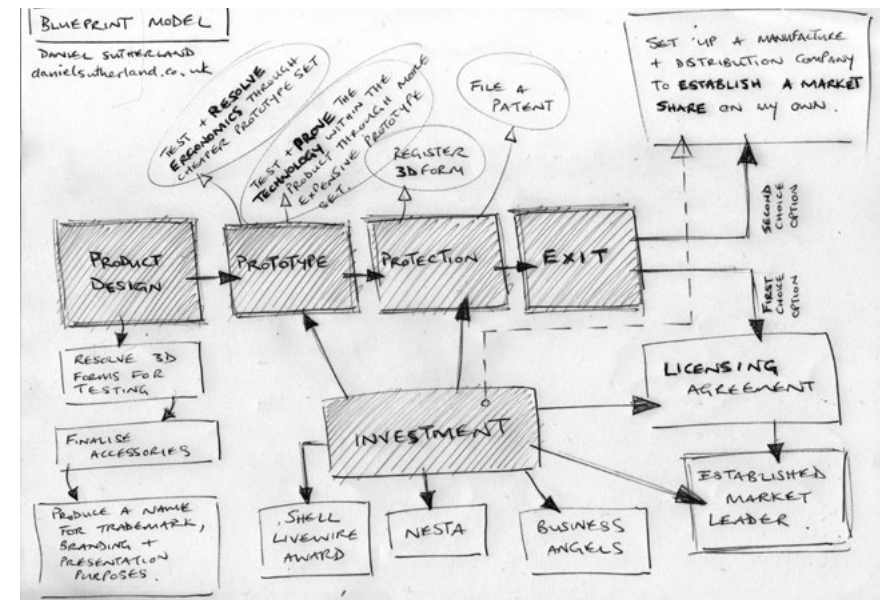 BLUEPRINT MODEL
DANIEL SUTHERLAND
danielsutherland.co.uk
TEST + RESOLVE
ERGONOMICS THROUGH
CHEAPER PROTOTYPE SET
TEST + PROVE THE
TECHNOLOGY WITHIN THE
PRODUCT THROUGH MORE
EXPENSIVE PROTOTYPE
SET.
REGISTER
3D FORM
FILE A
PATENT
SET UP A MANUFACTURE
+ DISTRIBUTION COMPANY
TO ESTABLISH A MARKET
SHARE ON MY OWN.
PRODUCT
DESIGN
PROTOTYPE
PROTECTION
EXIT
SECOND
CHOICE
OPTION
FIRST
CHOICE
OPTION
RESOLVE 3D
FORMS FOR
TESTING
FINALISE
ACCESSORIES
PRODUCE A NAME
FOR TRADEMARK,
BRANDING +
PRESENTATION
PURPOSES.
INVESTMENT
SHELL
LIVEWIRE
AWARD
NESTA
BUSINESS
ANGELS
LICENSING
AGREEMENT
ESTABLISHED
MARKET
LEADER